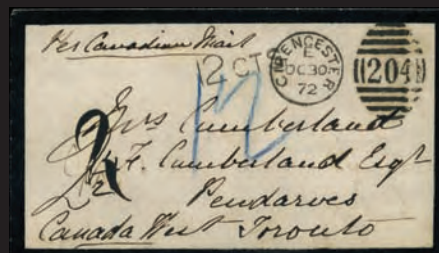 Per Canadian Mail
2 CTS
CIRENCESTER
E
OC 30
72
204
12
Mrs Cumberland
F. Cumberland Esqr
Pendarves
Canada West Toronto